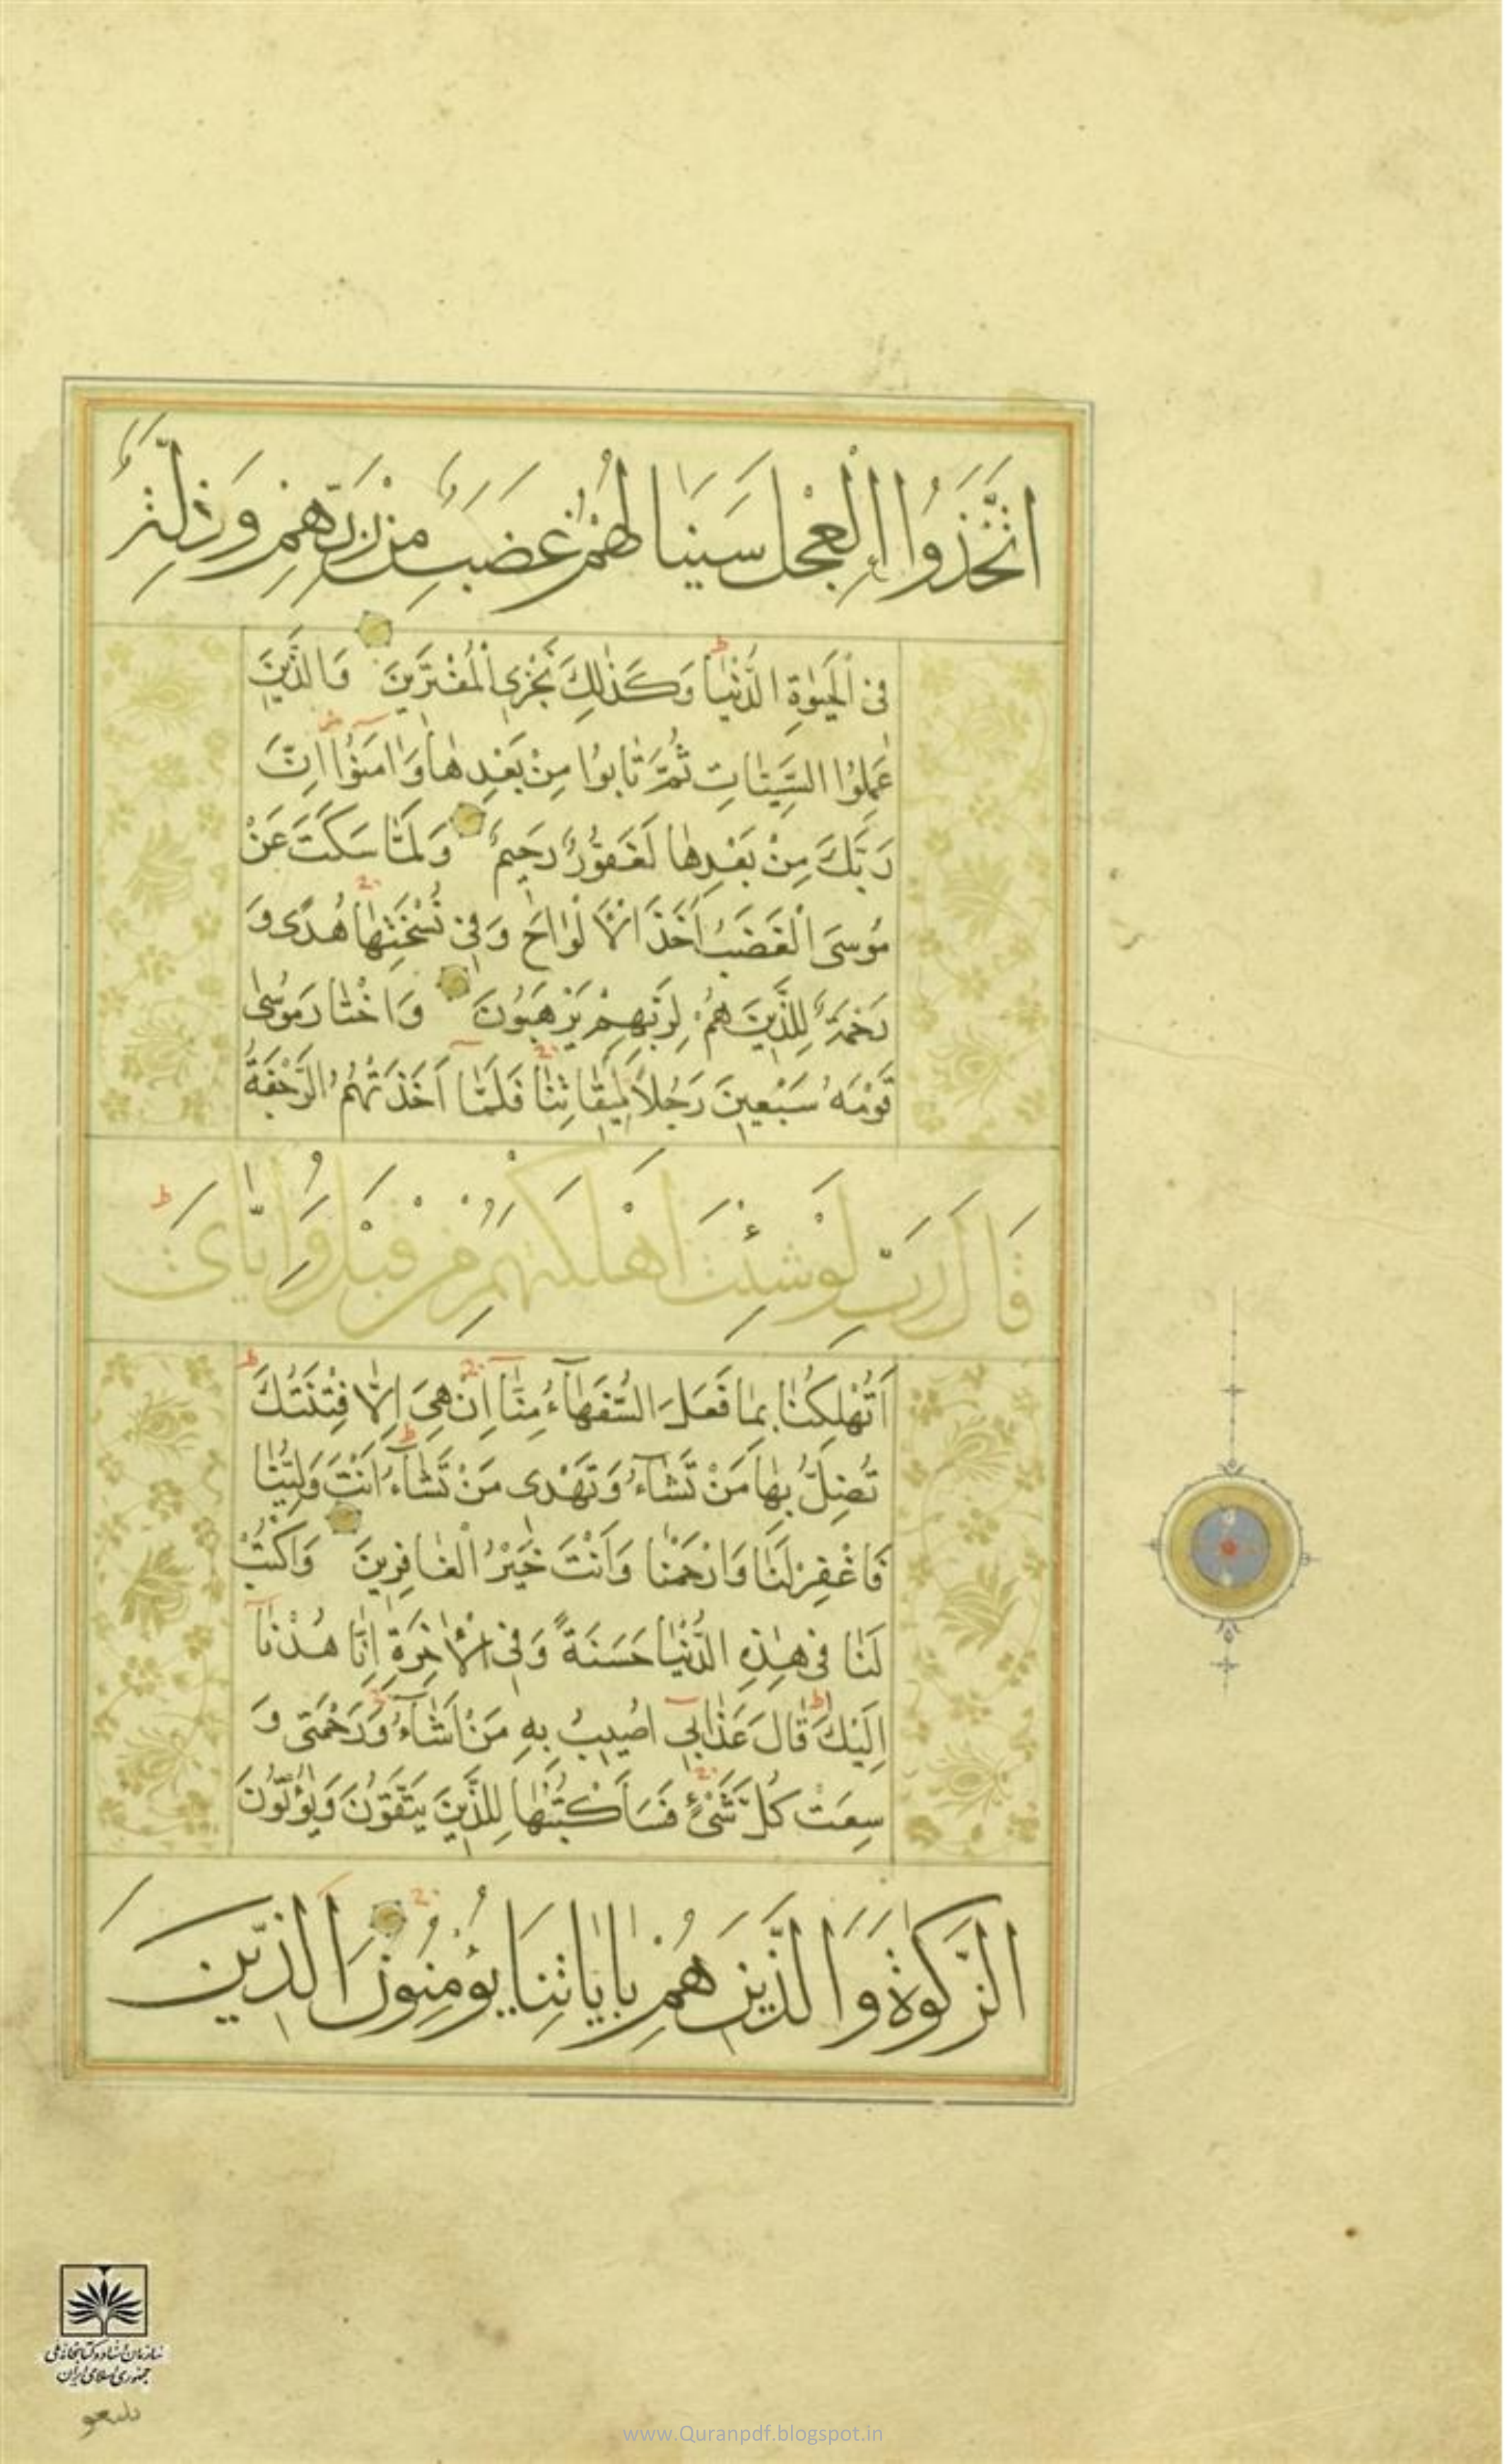 اتَّخَذُوا الْعِجْلَ سَيَنَالُهُمْ غَضَبٌ مِنْ رَبِّهِمْ وَذِلَّةٌ
فِي الْحَيٰوةِ الدُّنْيٰا وَكَذٰلِكَ نَجْزِي الْمُفْتَرِينَ وَالَّذِينَ
عَمِلُوا السَّيِّئٰاتِ ثُمَّ تٰابُوا مِنْ بَعْدِهٰا وَاٰمَنُوا اِنَّ
رَبَّكَ مِنْ بَعْدِهٰا لَغَفُورٌ رَحِيمٌ وَلَمّٰا سَكَتَ عَنْ
مُوسَى الْغَضَبُ اَخَذَ الْاَلْوٰاحَ وَفِي نُسْخَتِهٰا هُدًى وَ
رَحْمَةٌ لِلَّذِينَ هُمْ لِرَبِّهِمْ يَرْهَبُونَ وَاخْتٰارَ مُوسٰى
قَوْمَهُ سَبْعِينَ رَجُلاً لِمِيقٰاتِنٰا فَلَمّٰا اَخَذَتْهُمُ الرَّجْفَةُ
قَالَ رَبِّ لَوْ شِئْتَ اَهْلَكْتَهُمْ مِنْ قَبْلُ وَاِيّٰايَ
اَتُهْلِكُنٰا بِمٰا فَعَلَ السُّفَهٰآءُ مِنّٰا اِنْ هِيَ اِلّٰا فِتْنَتُكَ
تُضِلُّ بِهٰا مَنْ تَشٰآءُ وَتَهْدِي مَنْ تَشٰآءُ اَنْتَ وَلِيُّنٰا
فَاغْفِرْ لَنٰا وَارْحَمْنٰا وَاَنْتَ خَيْرُ الْغٰافِرِينَ وَاكْتُبْ
لَنٰا فِي هٰذِهِ الدُّنْيٰا حَسَنَةً وَفِي الْاٰخِرَةِ اِنّٰا هُدْنٰآ
اِلَيْكَ قٰالَ عَذٰابِي اُصِيبُ بِهِ مَنْ اَشٰآءُ وَرَحْمَتِي وَ
سِعَتْ كُلَّ شَيْءٍ فَسَاَكْتُبُهٰا لِلَّذِينَ يَتَّقُونَ وَيُؤْتُونَ
الزَّكٰوةَ وَالَّذِينَ هُمْ بِاٰيٰاتِنٰا يُؤْمِنُونَ اَلَّذِينَ
سازمان اسناد و کتابخانه ملی
جمهوری اسلامی ایران
يتبعو
www.Quranpdf.blogspot.in